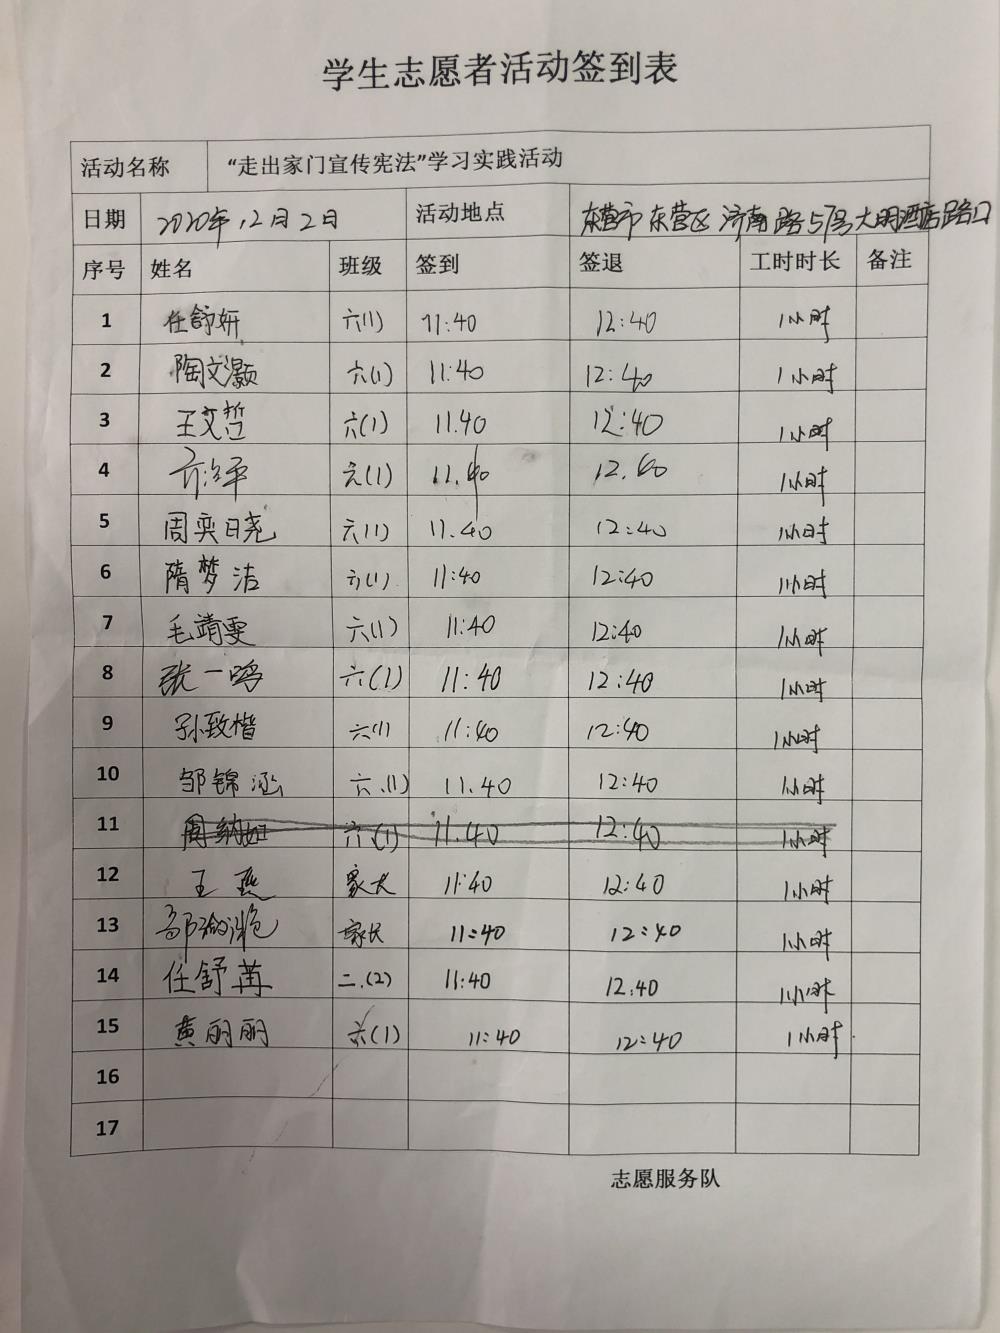 学生志愿者活动签到表
活动名称 “走出家门宣传宪法”学习实践活动
日期 2020年12月2日 活动地点 东营市东营区济南路57号大明酒店路口
序号 姓名 班级 签到 签退 工时时长 备注
1 任舒妍 六(1) 11:40 12:40 1小时
2 陶文灏 六(1) 11:40 12:40 1小时
3 王文哲 六(1) 11.40 12:40 1小时
4 六(1) 11.40 12.40 1小时
5 周奕日尧 六(1) 11.40 12:40 1小时
6 隋梦洁 六(1) 11:40 12:40 1小时
7 毛靖雯 六(1) 11:40 12:40 1小时
8 张一鸣 六(1) 11:40 12:40 1小时
9 孙致楷 六(1) 11:40 12:40 1小时
10 邹锦涵 六.(1) 11.40 12:40 1小时
11 周纳 六(1) 11.40 12:40 1小时
12 王燕 家长 11:40 12:40 1小时
13 家长 11:40 12:40 1小时
14 任舒苒 二.(2) 11:40 12:40 1小时
15 黄丽丽 六(1) 11:40 12:40 1小时
16
17
志愿服务队